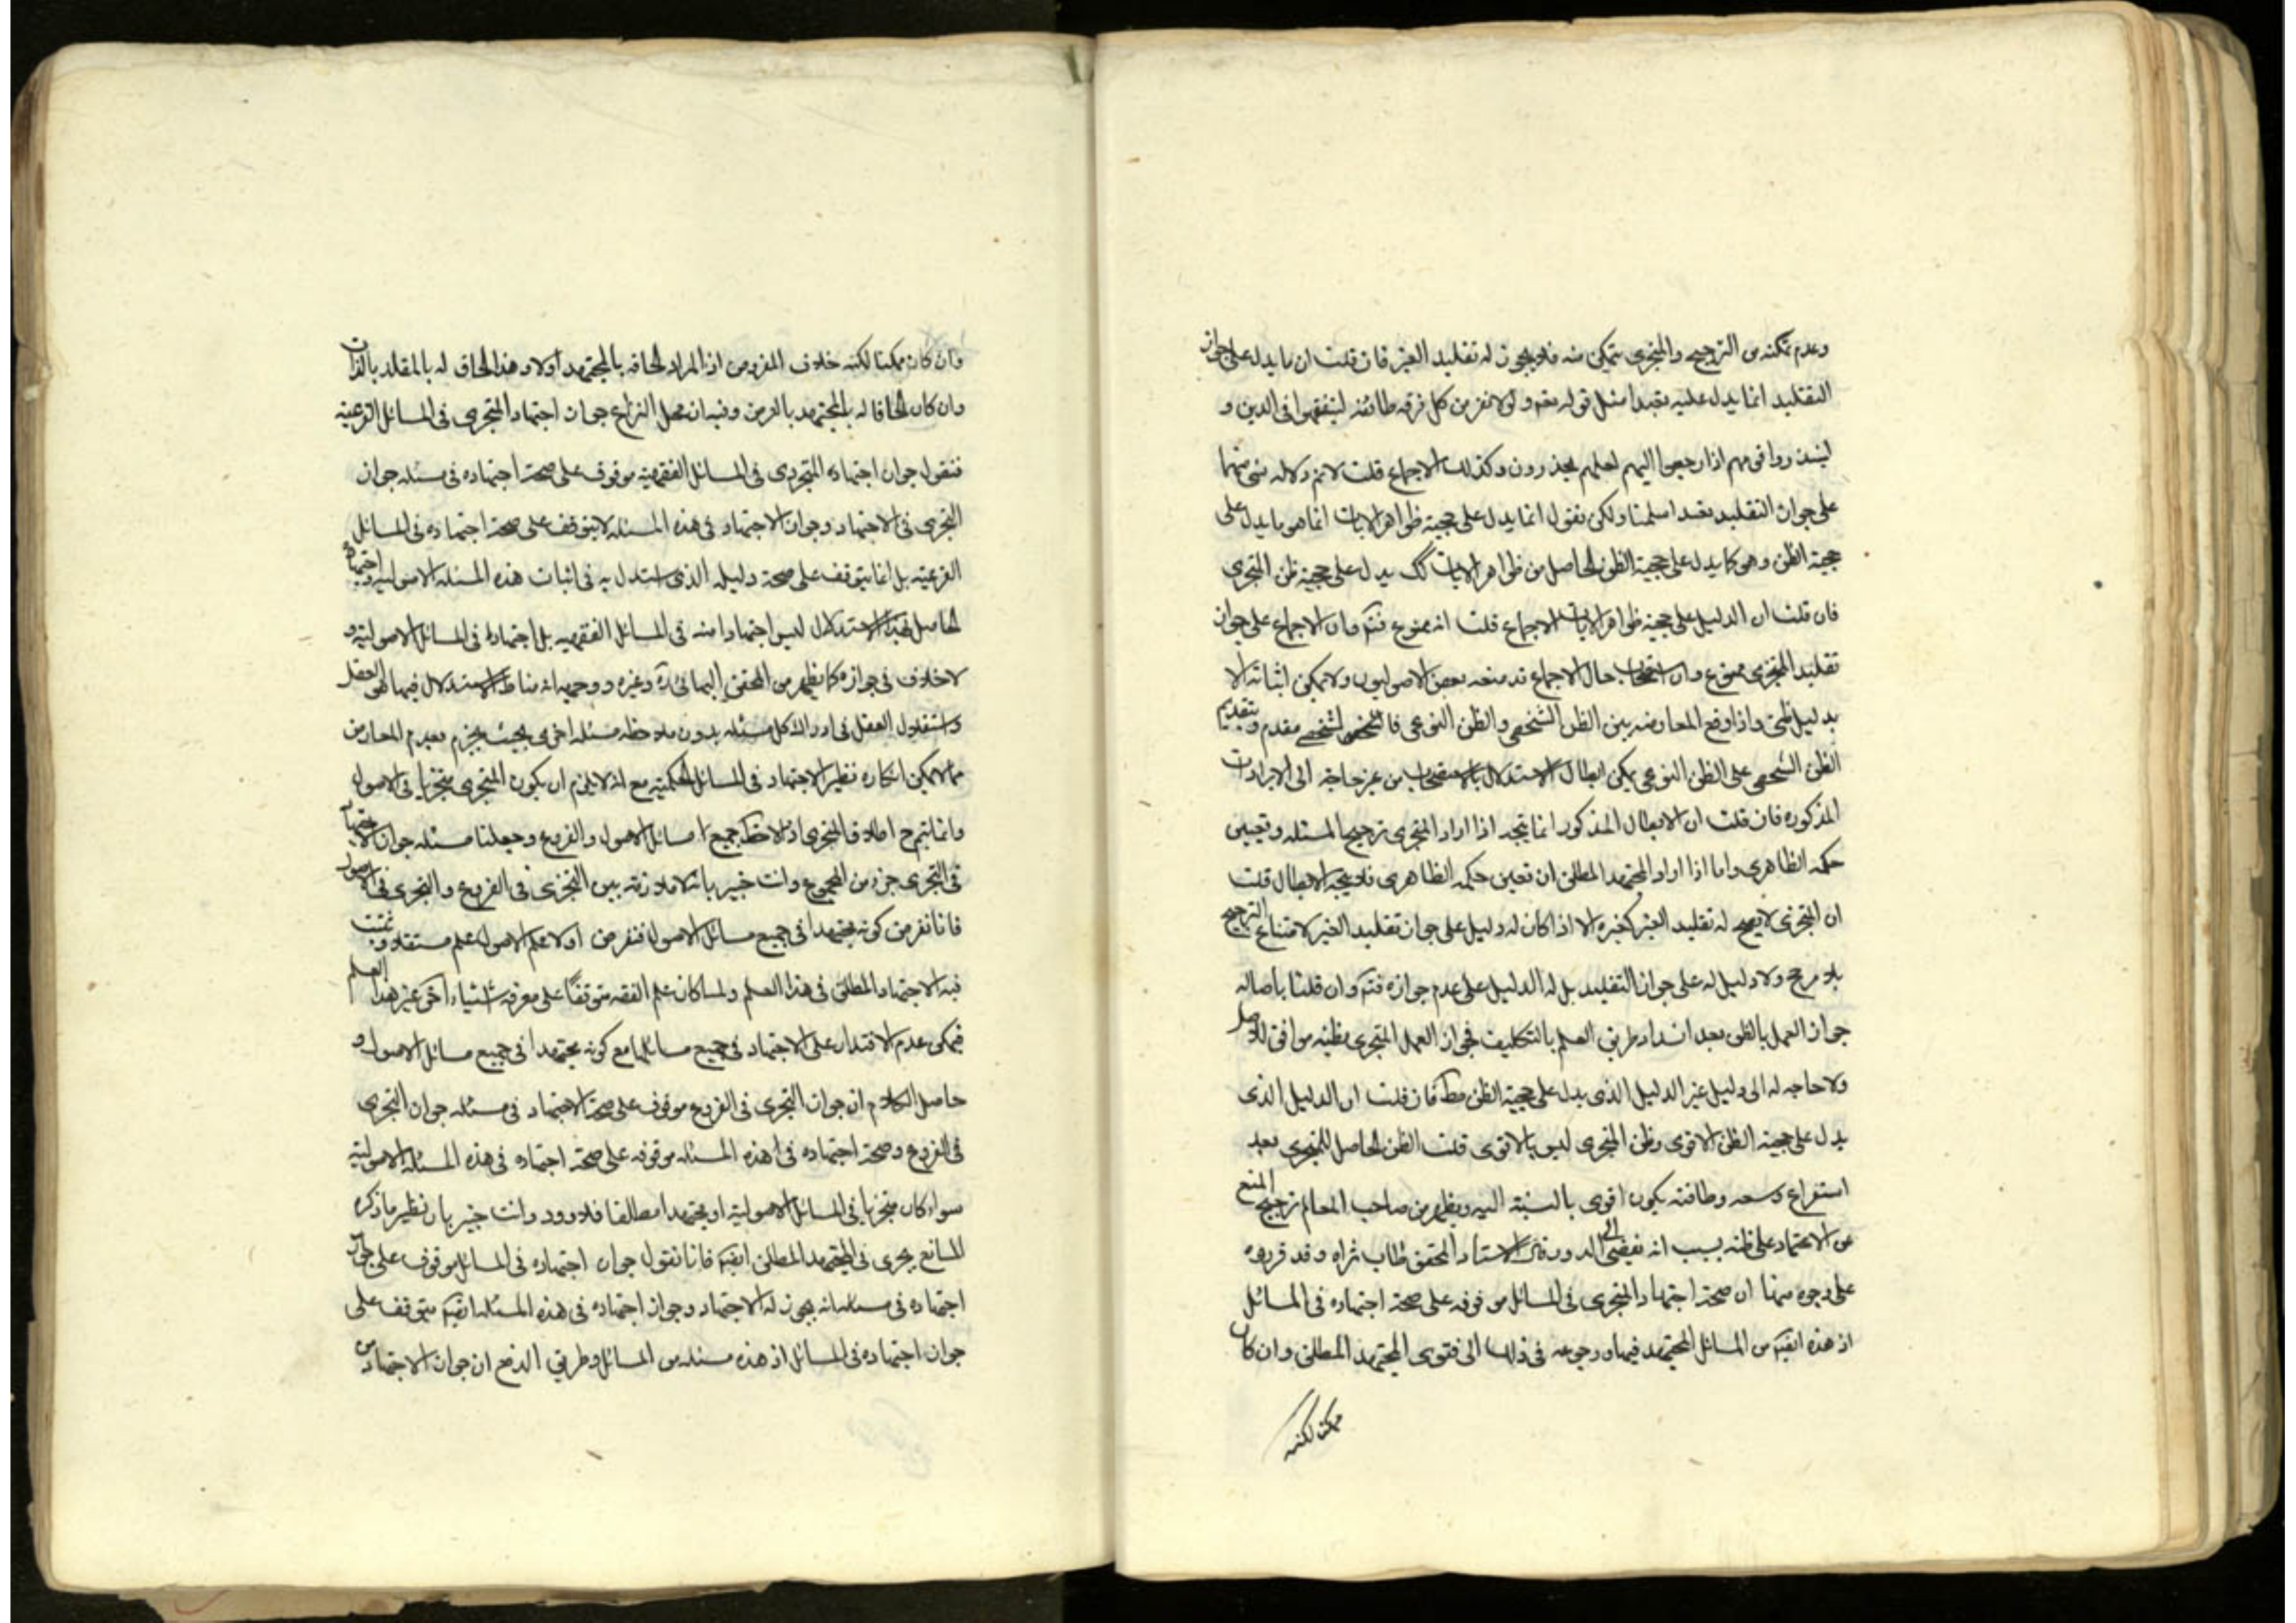 وعدم تمكنه من الترجيح والمتجزى يتمكن منه فلا يجوز له تقليد الغير فان قلت ان ما يدل على جواز
التقليد انما يدل عليه تعبدا مثل قوله تعم ولولا نفر من كل فرقه طائفه ليتفقهوا فى الدين و
لينذروا قومهم اذا رجعوا اليهم لعلهم يحذرون وكذلك الاجماع قلت لانم دلاله شى منهما
على جواز التقليد تعبدا سلمنا ولكن نقول انما يدل على حجية ظواهر الايات انما هو ما يدل على
حجية الظن وهو كما يدل على حجية الظن الحاصل من ظواهر الايات كك يدل على حجية ظن المتجزى
فان قلت ان الدليل على حجية ظواهر الايات الاجماع قلت انه ممنوع فتم وان الاجماع على جواز
تقليد المتجزى ممنوع وان استصحاب حال الاجماع قد منعه بعض الاصوليون ولا يمكن اثباته الا
بدليل ظنى واذا وقع المعارضه بين الظن الشخصى والظن النوعى فالشخصى مقدم وبتقديم
الظن الشخصى على الظن النوعى يمكن ابطال الاستدلال بالاستصحاب من غير حاجة الى الايرادات
المذكوره فان قلت ان الابطال المذكور انما يتجه اذا اراد المتجزى ترجيح المسئله وتعيين
حكمه الظاهرى واما اذا اراد المجتهد المطلق ان تعين حكمه الظاهرى فلا يتجه الابطال قلت
ان المتجزى لا يصح له تقليد الغير كغيره الا اذا كان له دليل على جواز تقليد الغير لامتناع الترجيح
بلا مرجح ولا دليل له على جواز التقليد بل له الدليل على عدم جوازه فتم وان قلنا باصاله
جواز العمل بالظن بعد انسداد طريق العلم بالتكليف فجواز العمل المتجزى بظنه موافق للاصل
ولا حاجه له الى دليل غير الدليل الذى يدل على حجية الظن مط فان قلت ان الدليل الذى
يدل على حجية الظن الاقوى وظن المتجزى ليس بالاقوى قلت الظن الحاصل للمتجزى بعد
استفراع وسعه وطاقته يكون اقوى بالنسبة اليه ويظهر من صاحب المعالم ترجيح المنع
عن الاعتماد على ظنه بسبب انه يفضى الى الدور وقال الاستاد المحقق طاب ثراه وقد قرروه
على وجوه منها ان صحة اجتهاد المتجزى فى المسائل موقوفه على صحة اجتهاده فى المسائل
اذ هذه ايضا من المسائل المجتهد فيها ورجوعه فى ذلك الى فتوى المجتهد المطلق وان كان
ممكنا لكنه
وان كان ممكنا لكنه خلاف المفروض اذ المراد الحاقه بالمجتهد اولا وهذا الحاق له بالمقلد بالذات
وان كان الحاقا له بالمجتهد بالعرض وفيه ان محل النزاع جواز اجتهاد المتجزى فى المسائل الفرعية
فنقول جواز اجتهاد المتجزى فى المسائل الفقهية موقوف على صحة اجتهاده فى مسئله جواز
التجزى فى الاجتهاد وجواز الاجتهاد فى هذه المسئله لا يتوقف على صحة اجتهاده فى المسائل
الفرعيه بل انما يتوقف على صحة دليله الذى استدل به فى اثبات هذه المسئله الاصوليه واجتهاده
الحاصل بهذا الاستدلال ليس اجتهادا منه فى المسائل الفقهيه بل اجتهاد له فى المسائل الاصولية و
لا خلاف فى جوازه كما يظهر من المحقق البهائى ره وغيره ووجهه ان مناط الاستدلال فيها هو العقل
واستقلال العقل فى ادراك كل مسئله بدون ملاحظه مسئله اخرى بحيث يجزم بعدم المعارض
مما لا يمكن انكاره نظير الاجتهاد فى المسائل الحكميه مع انه لا يلزم ان يكون المتجزى متجزيا فى الاصول
وانما يتم ح اطلاق المتجزى اذ لاحظ جميع مسائل الاصول والفروع وجعلنا مسئله جواز الاجتهاد
فى التجزى جزء من المجموع وانت خبير بان لا ملازمه بين التجزى فى الفروع والتجزى فى الاصول
فانا نفرض كونه مجتهدا فى جميع مسائل الاصول فنفرض اولا علم الاصول علم مستقلا ويثبت
فيه الاجتهاد المطلق فى هذا العلم ولما كان علم الفقه متوقفا على معرفه اشياء اخر غير هذا العلم
فيمكن عدم الاقتدار على الاجتهاد فى جميع مسائلها مع كونه مجتهدا فى جميع مسائل الاصول و
حاصل الكلام ان جواز التجزى فى الفروع موقوف على صحة الاجتهاد فى مسئله جواز التجزى
فى الفروع وصحة اجتهاده فى هذه المسئله موقوفه على صحة اجتهاده فى هذه المسئله الاصولية
سواء كان متجزيا فى المسائل الاصولية او مجتهدا مطلقا فلا دور وانت خبير بان نظير ما ذكره
المانع يجرى فى المجتهد المطلق ايضا فانا نقول جواز اجتهاده فى المسائل موقوف على جواز
اجتهاده فى مسئله انه يجوز له الاجتهاد وجواز اجتهاده فى هذه المسئله ايضا يتوقف على
جواز اجتهاده فى المسائل اذ هذه مسئله من المسائل وطريق الدفع ان جواز الاجتهاد من